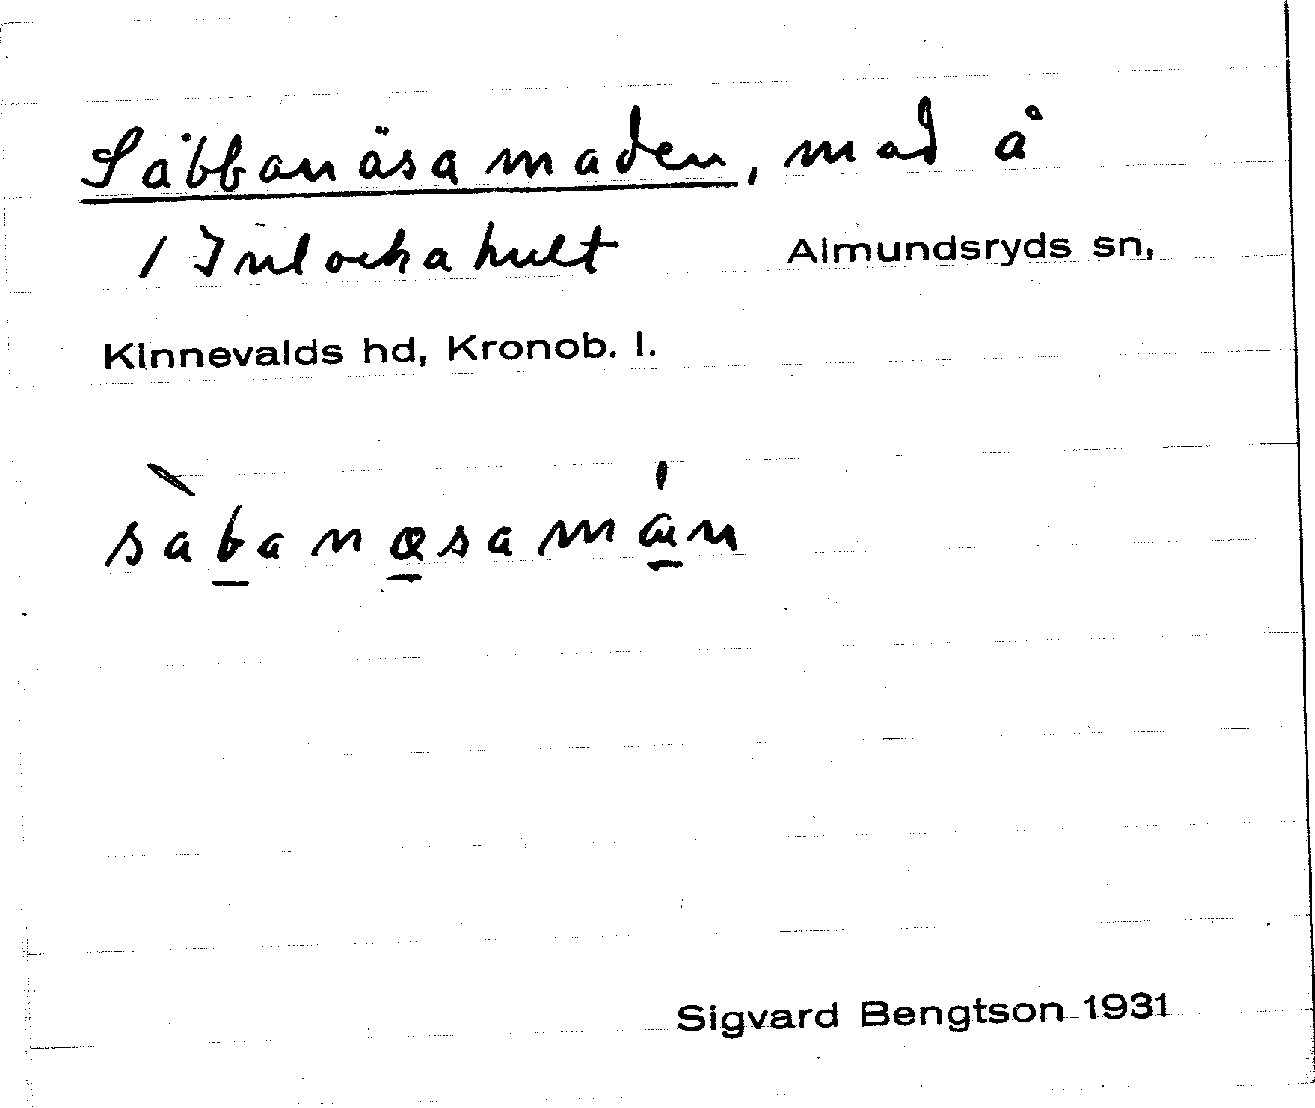 Säbbanäsamaden, mad å
/ Inlockahult Almundsryds sn,
Kinnevalds hd, Kronob. l.
sàbanæsamán
Sigvard Bengtson 1931